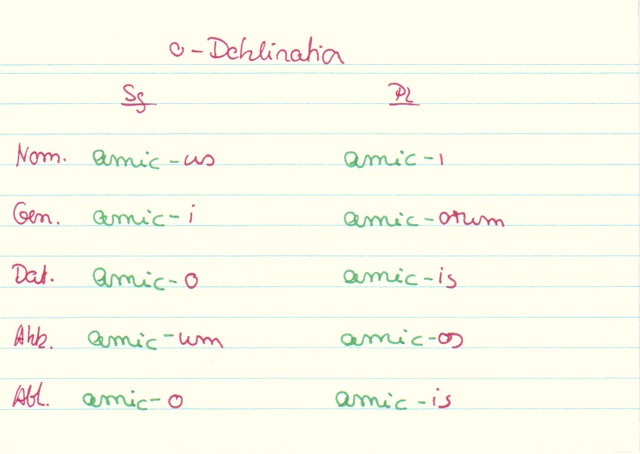 o-Deklination
Sg Pl
Nom. amic-us amic-i
Gen. amic-i amic-orum
Dat. amic-o amic-is
Akk. amic-um amic-os
Abl. amic-o amic-is